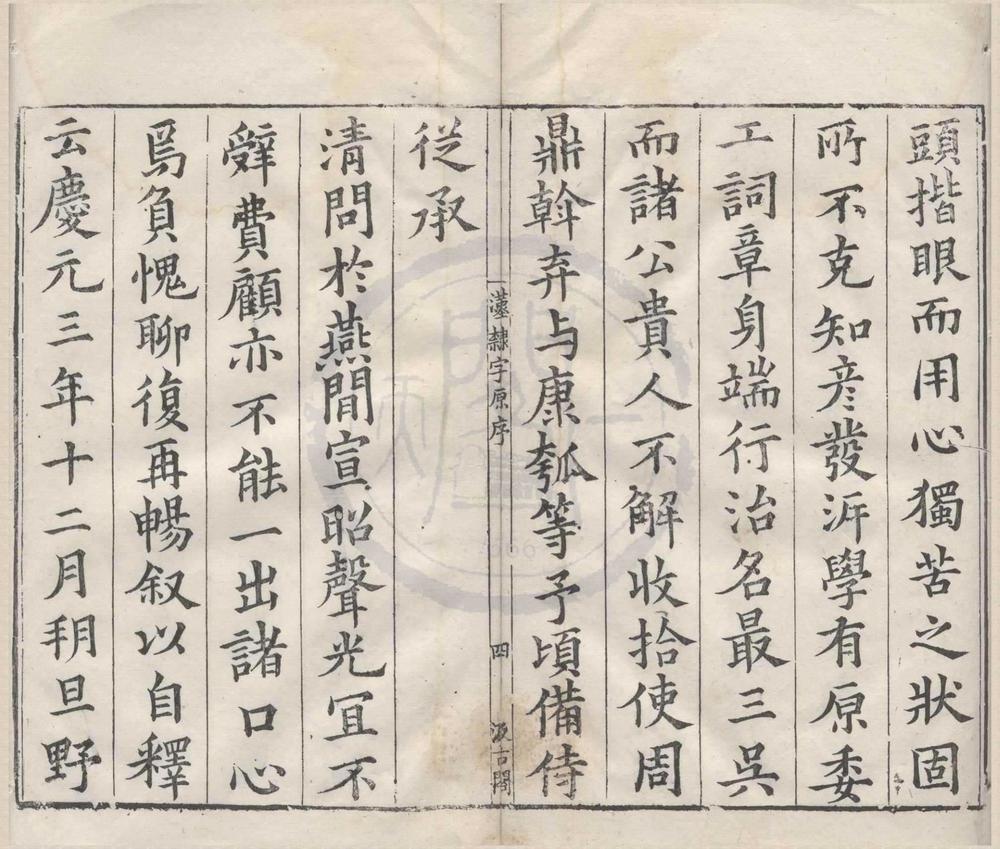 頭揩眼而用心獨苦之狀固
所不克知彥發泝學有原委
工詞章身端行治名最三吳
而諸公貴人不解收拾使周
鼎斡弃与康瓠等予頃備侍
漢隸字原序 四 汲古閣
從承
清問於燕間宣昭聲光冝不
辤費顧亦不能一出諸口心
焉負愧聊復再暢叙以自釋
云慶元三年十二月朔旦野